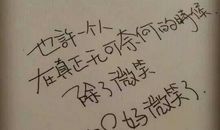 也許一个人
在真正无可奈何的時候
除了微笑
也只好微笑了.